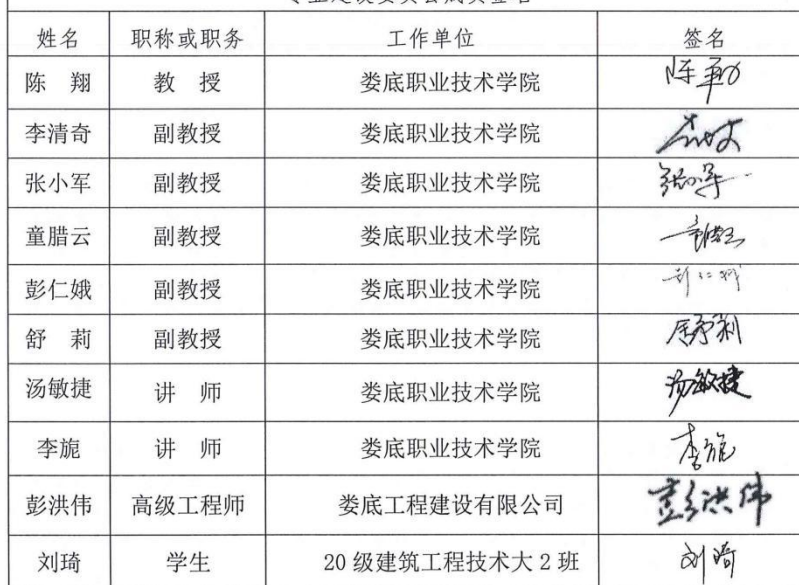 姓名 职称或职务 工作单位 签名
陈 翔 教 授 娄底职业技术学院 陈翔
李清奇 副教授 娄底职业技术学院
张小军 副教授 娄底职业技术学院 张小军
童腊云 副教授 娄底职业技术学院 童腊云
彭仁娥 副教授 娄底职业技术学院 彭仁娥
舒 莉 副教授 娄底职业技术学院 舒莉
汤敏捷 讲 师 娄底职业技术学院 汤敏捷
李旎 讲 师 娄底职业技术学院 李旎
彭洪伟 高级工程师 娄底工程建设有限公司 彭洪伟
刘琦 学生 20 级建筑工程技术大 2 班 刘琦